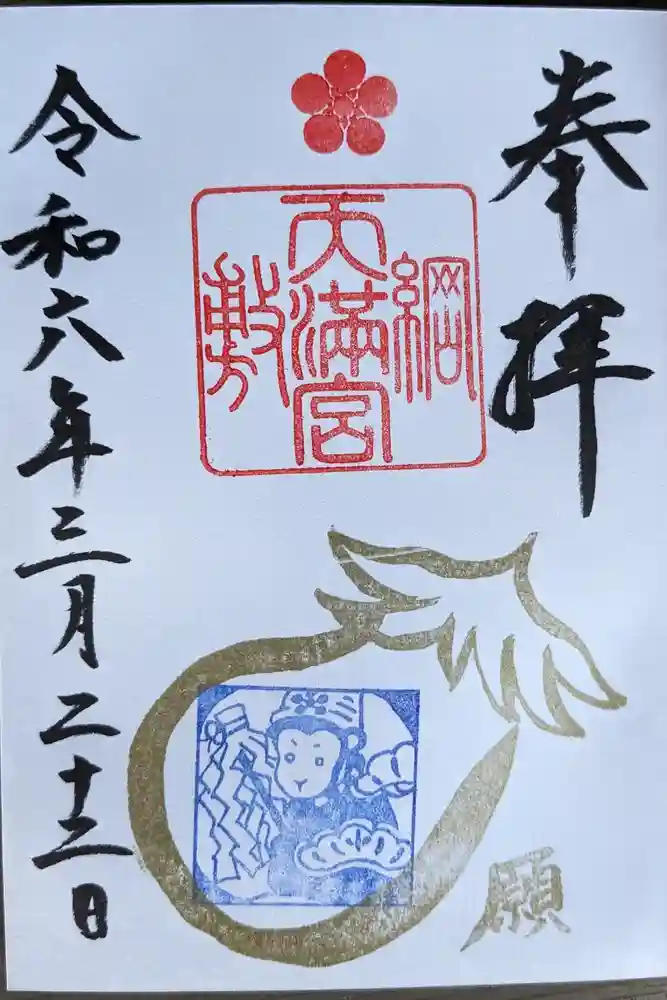 奉拝
綱
天満宮
敷
願
令和六年三月二十二日